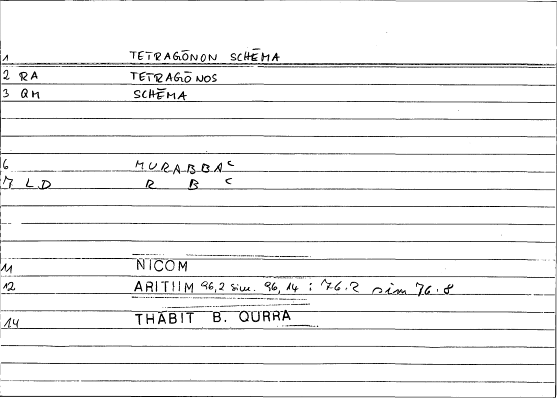 1 TETRAGŌNON SCHĒMA
2 RA TETRAGŌNOS
3 QM SCHĒMA
6 MURABBAᶜ
7 LD R B ᶜ
11 NICOM
12 ARITHM 96,2 sim. 96,14 : 76.2 sim 76.8
14 THĀBIT B. QURRA